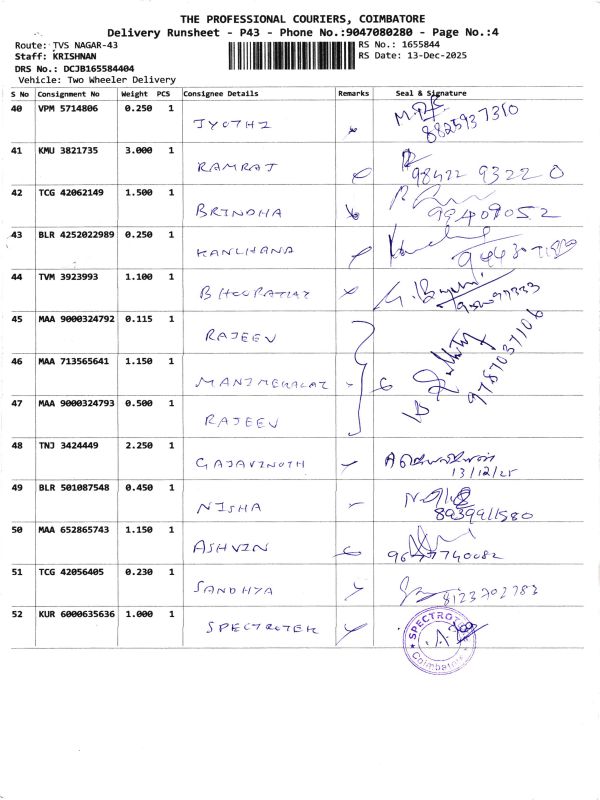 THE PROFESSIONAL COURIERS, COIMBATORE
Delivery Runsheet - P43 - Phone No.:9047080280 - Page No.:4
Route: TVS NAGAR-43
RS No.: 1655844
Staff: KRISHNAN
RS Date: 13-Dec-2025
DRS No.: DCJB165584404
Vehicle: Two Wheeler Delivery
S No Consignment No Weight PCS Consignee Details Remarks Seal & Signature
40 VPM 5714806 0.250 1
JYOTHI
8825937310
41 KMU 3821735 3.000 1
RAMRAJ
98422 93220
42 TCG 42062149 1.500 1
BRINDHA
43 BLR 4252022989 0.250 1
KANCHANA
44 TVM 3923993 1.100 1
BHOOPATHY
45 MAA 9000324792 0.115 1
RAJEEV
46 MAA 713565641 1.150 1
MANIMEKALAI
9787037106
47 MAA 9000324793 0.500 1
RAJEEV
48 TNJ 3424449 2.250 1
GAJAVINOTH
13/12/25
49 BLR 501087548 0.450 1
NISHA
8939911580
50 MAA 652865743 1.150 1
ASHVIN
51 TCG 42056405 0.230 1
SANDHYA
8123702783
52 KUR 6000635636 1.000 1
SPECTROTEK
Coimbatore